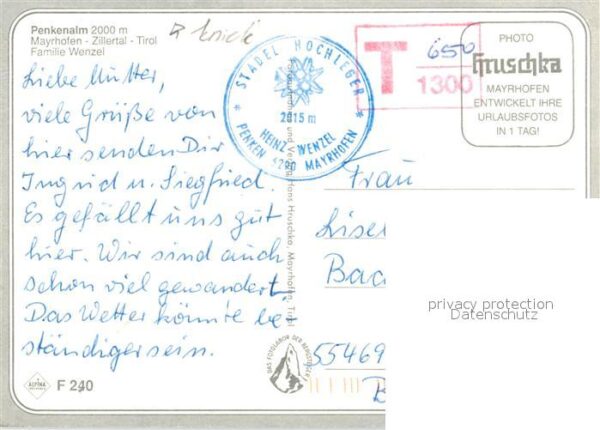 Penkenalm 2000 m
Mayrhofen - Zillertal - Tirol
Familie Wenzel
Liebe Mutter,
viele Grüße von
hier senden Dir
Ingrid u. Siegfried.
Es gefällt uns gut
hier. Wir sind auch
schon viel gewandert.
Das Wetter könnte be-
ständiger sein.
ALPINA
F 240
STADEL HOCHLEGER
2015 m
HEINZ WENZEL
PENKEN 6290 MAYRHOFEN
und Verlag Hans Hruschka, Mayrhofen, Tirol
DAS FOTOLABOR DER BERGSTEIGER
T 650
1300
PHOTO
hruschka
MAYRHOFEN
ENTWICKELT IHRE
URLAUBSFOTOS
IN 1 TAG!
Frau
Lise
Bad
55469
privacy protection
Datenschutz